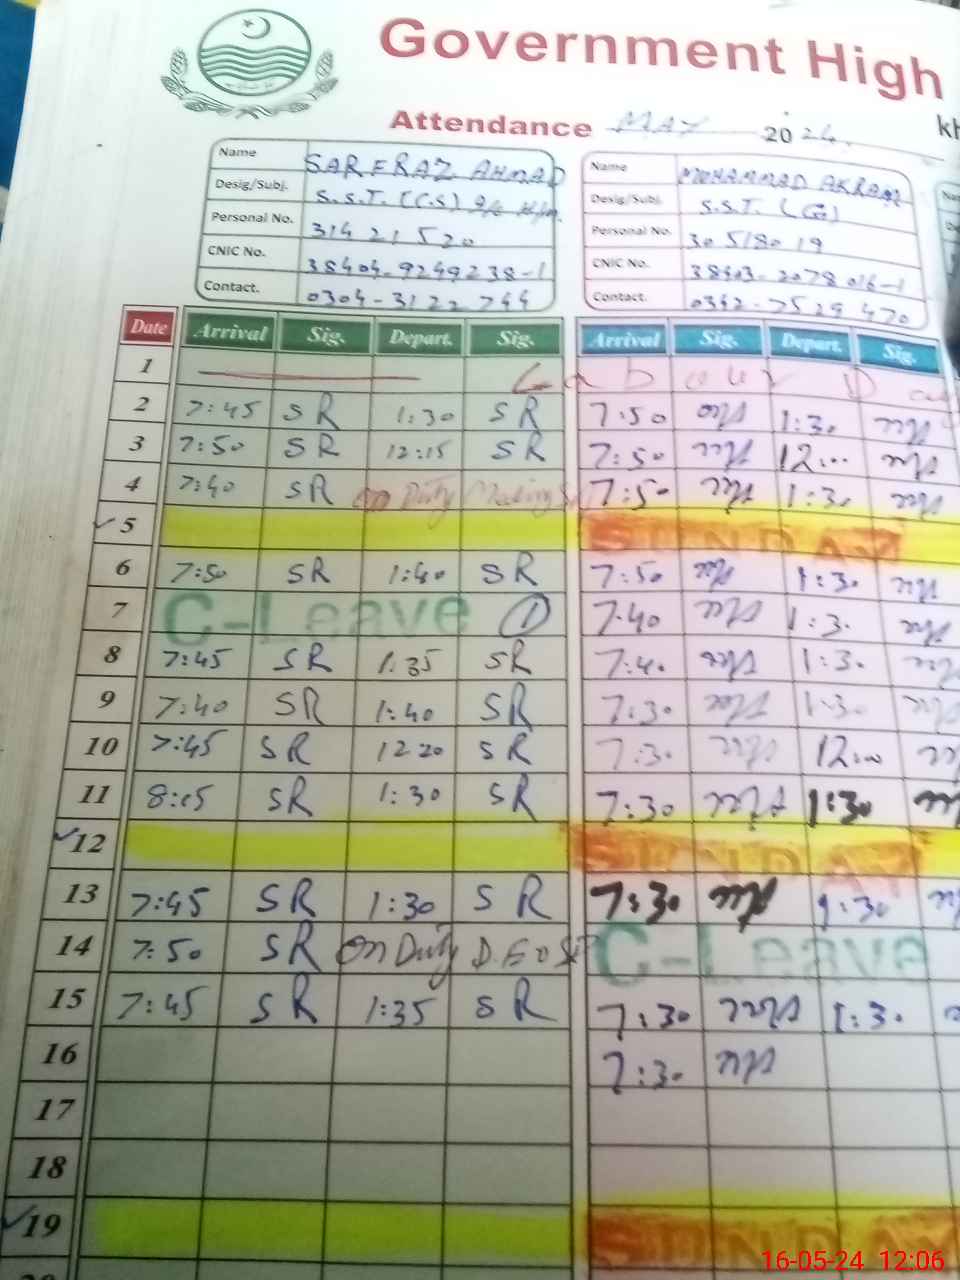 Government High
Attendance MAY 2024. kh
Name SARFRAZ AHMAD
Desig/Subj. S.S.T. (C.S)
Personal No. 31421520
CNIC No. 38404-9249238-1
Contact. 0304-3122744
Name MUHAMMAD AKRAM
Desig/Subj. S.S.T. (G)
Personal No. 30518019
CNIC No. 38403-2078016-1
Contact. 0342-7529470
Date Arrival Sig. Depart. Sig. Arrival Sig. Depart. Sig.
1 Labour Da
2 7:45 SR 1:30 SR 7:50 1:30
3 7:50 SR 12:15 SR 7:50 12:00
4 7:40 SR on Duty Meeting 7:50 1:30
5 SUNDAY
6 7:50 SR 1:40 SR 7:50 1:30
7 C-Leave 1 7:40 1:30
8 7:45 SR 1:35 SR 7:40 1:30
9 7:40 SR 1:40 SR 7:30 1:30
10 7:45 SR 12 20 SR 7:30 12:00
11 8:15 SR 1:30 SR 7:30 1:30
12 SUNDAY
13 7:45 SR 1:30 SR 7:30 1:30
14 7:50 SR on Duty C-Leave
15 7:45 SR 1:35 SR 7:30 1:30
16 7:30
17
18
19 SUNDAY
16-05-24 12:06